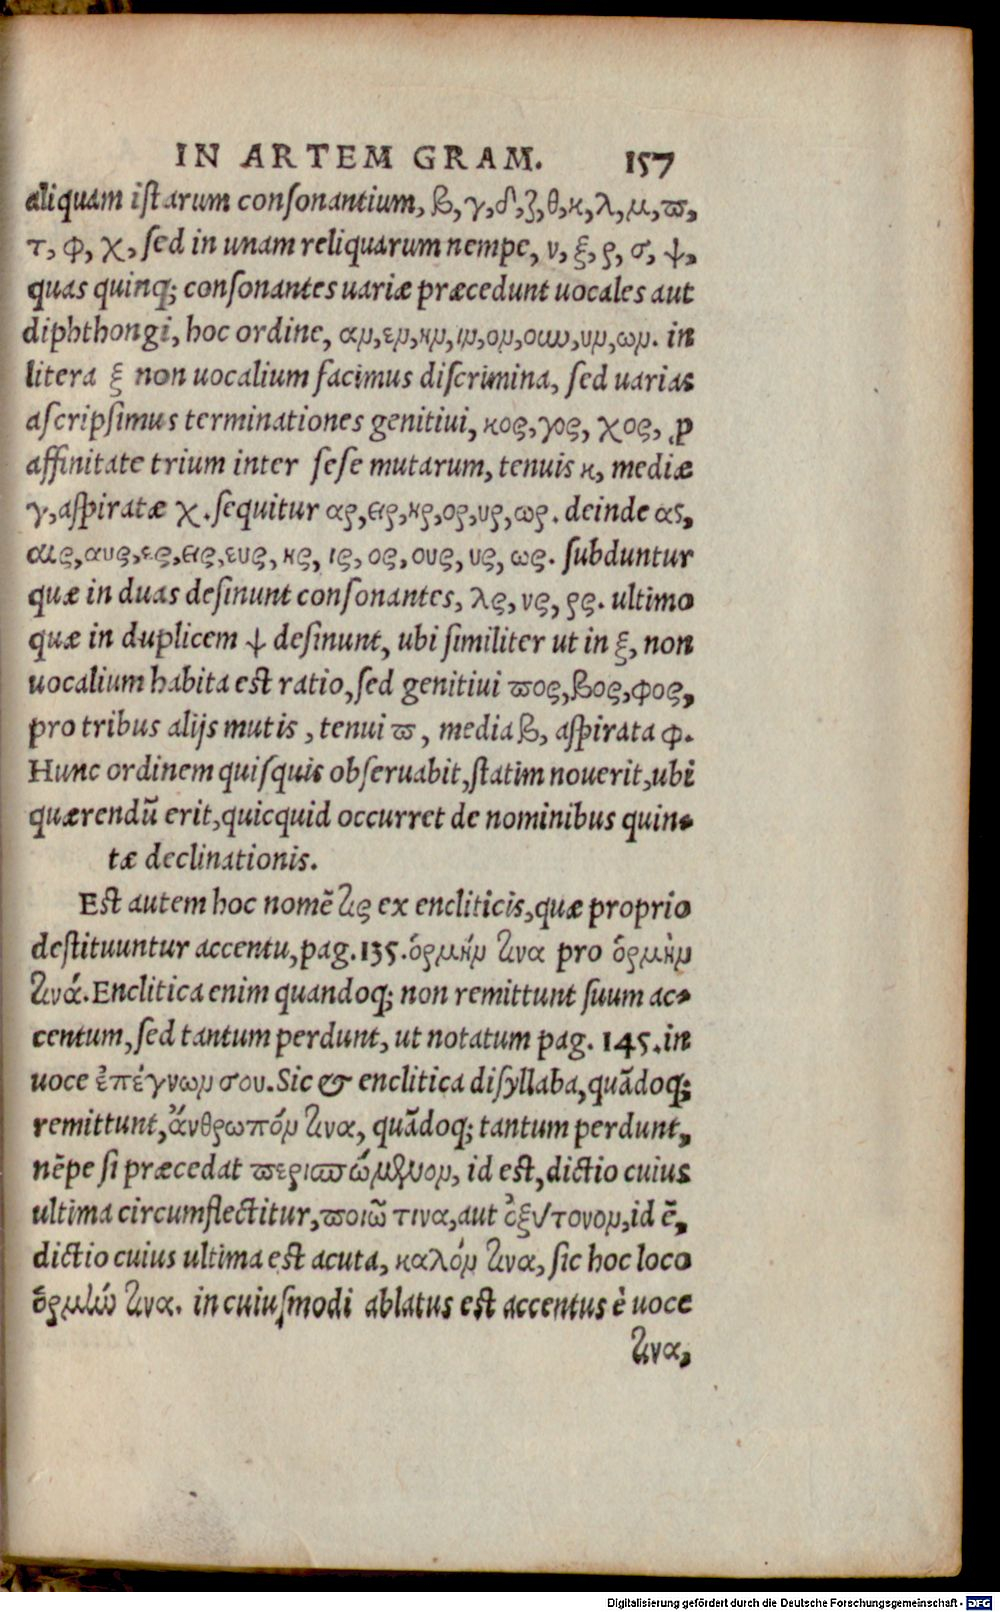 IN ARTEM GRAM. 157
aliquam istarum consonantium, β, γ, δ, ζ, θ, κ, λ, μ, ϖ,
τ, φ, χ, sed in unam reliquarum nempe, ν, ξ, ρ, σ, ψ,
quas quinq; consonantes uariæ præcedunt uocales aut
diphthongi, hoc ordine, αν, εν, ην, ιν, ον, ουν, υν, ων. in
litera ξ non uocalium facimus discrimina, sed uarias
ascripsimus terminationes genitiui, κος, γος, χος, ꝓ
affinitate trium inter sese mutarum, tenuis κ, mediæ
γ, aspiratæ χ. sequitur αρ, ειρ, ηρ, ορ, υρ, ωρ. deinde ας,
αις, αυς, ες, εις, ευς, ης, ις, ος, ους, υς, ως. subduntur
quæ in duas desinunt consonantes, λς, νς, ρς. ultimo
quæ in duplicem ψ desinunt, ubi similiter ut in ξ, non
uocalium habita est ratio, sed genitiui ϖος, βος, φος,
pro tribus alijs mutis, tenui ϖ, media β, aspirata φ.
Hunc ordinem quisquis obseruabit, statim nouerit, ubi
quærendū erit, quicquid occurret de nominibus quin-
tæ declinationis.
Est autem hoc nomē τὶς ex encliticis, quæ proprio
destituuntur accentu, pag. 135. ὁρμήν τινα pro ὁρμὴν
τινά. Enclitica enim quandoq; non remittunt suum ac-
centum, sed tantum perdunt, ut notatum pag. 145. in
uoce ἐπέγνων σου. Sic & enclitica disyllaba, quādoq;
remittunt, ἄνθρωπόν τινα, quādoq; tantum perdunt,
nēpe si præcedat ϖεριασϖώμενον, id est, dictio cuius
ultima circumflectitur, ϖοιῶ τινα, aut ὀξύτονον, id ē,
dictio cuius ultima est acuta, καλόν τινα, sic hoc loco
ὁρμήν τινα. in cuiusmodi ablatus est accentus è uoce
τινα,
Digitalisierung gefördert durch die Deutsche Forschungsgemeinschaft - DFG